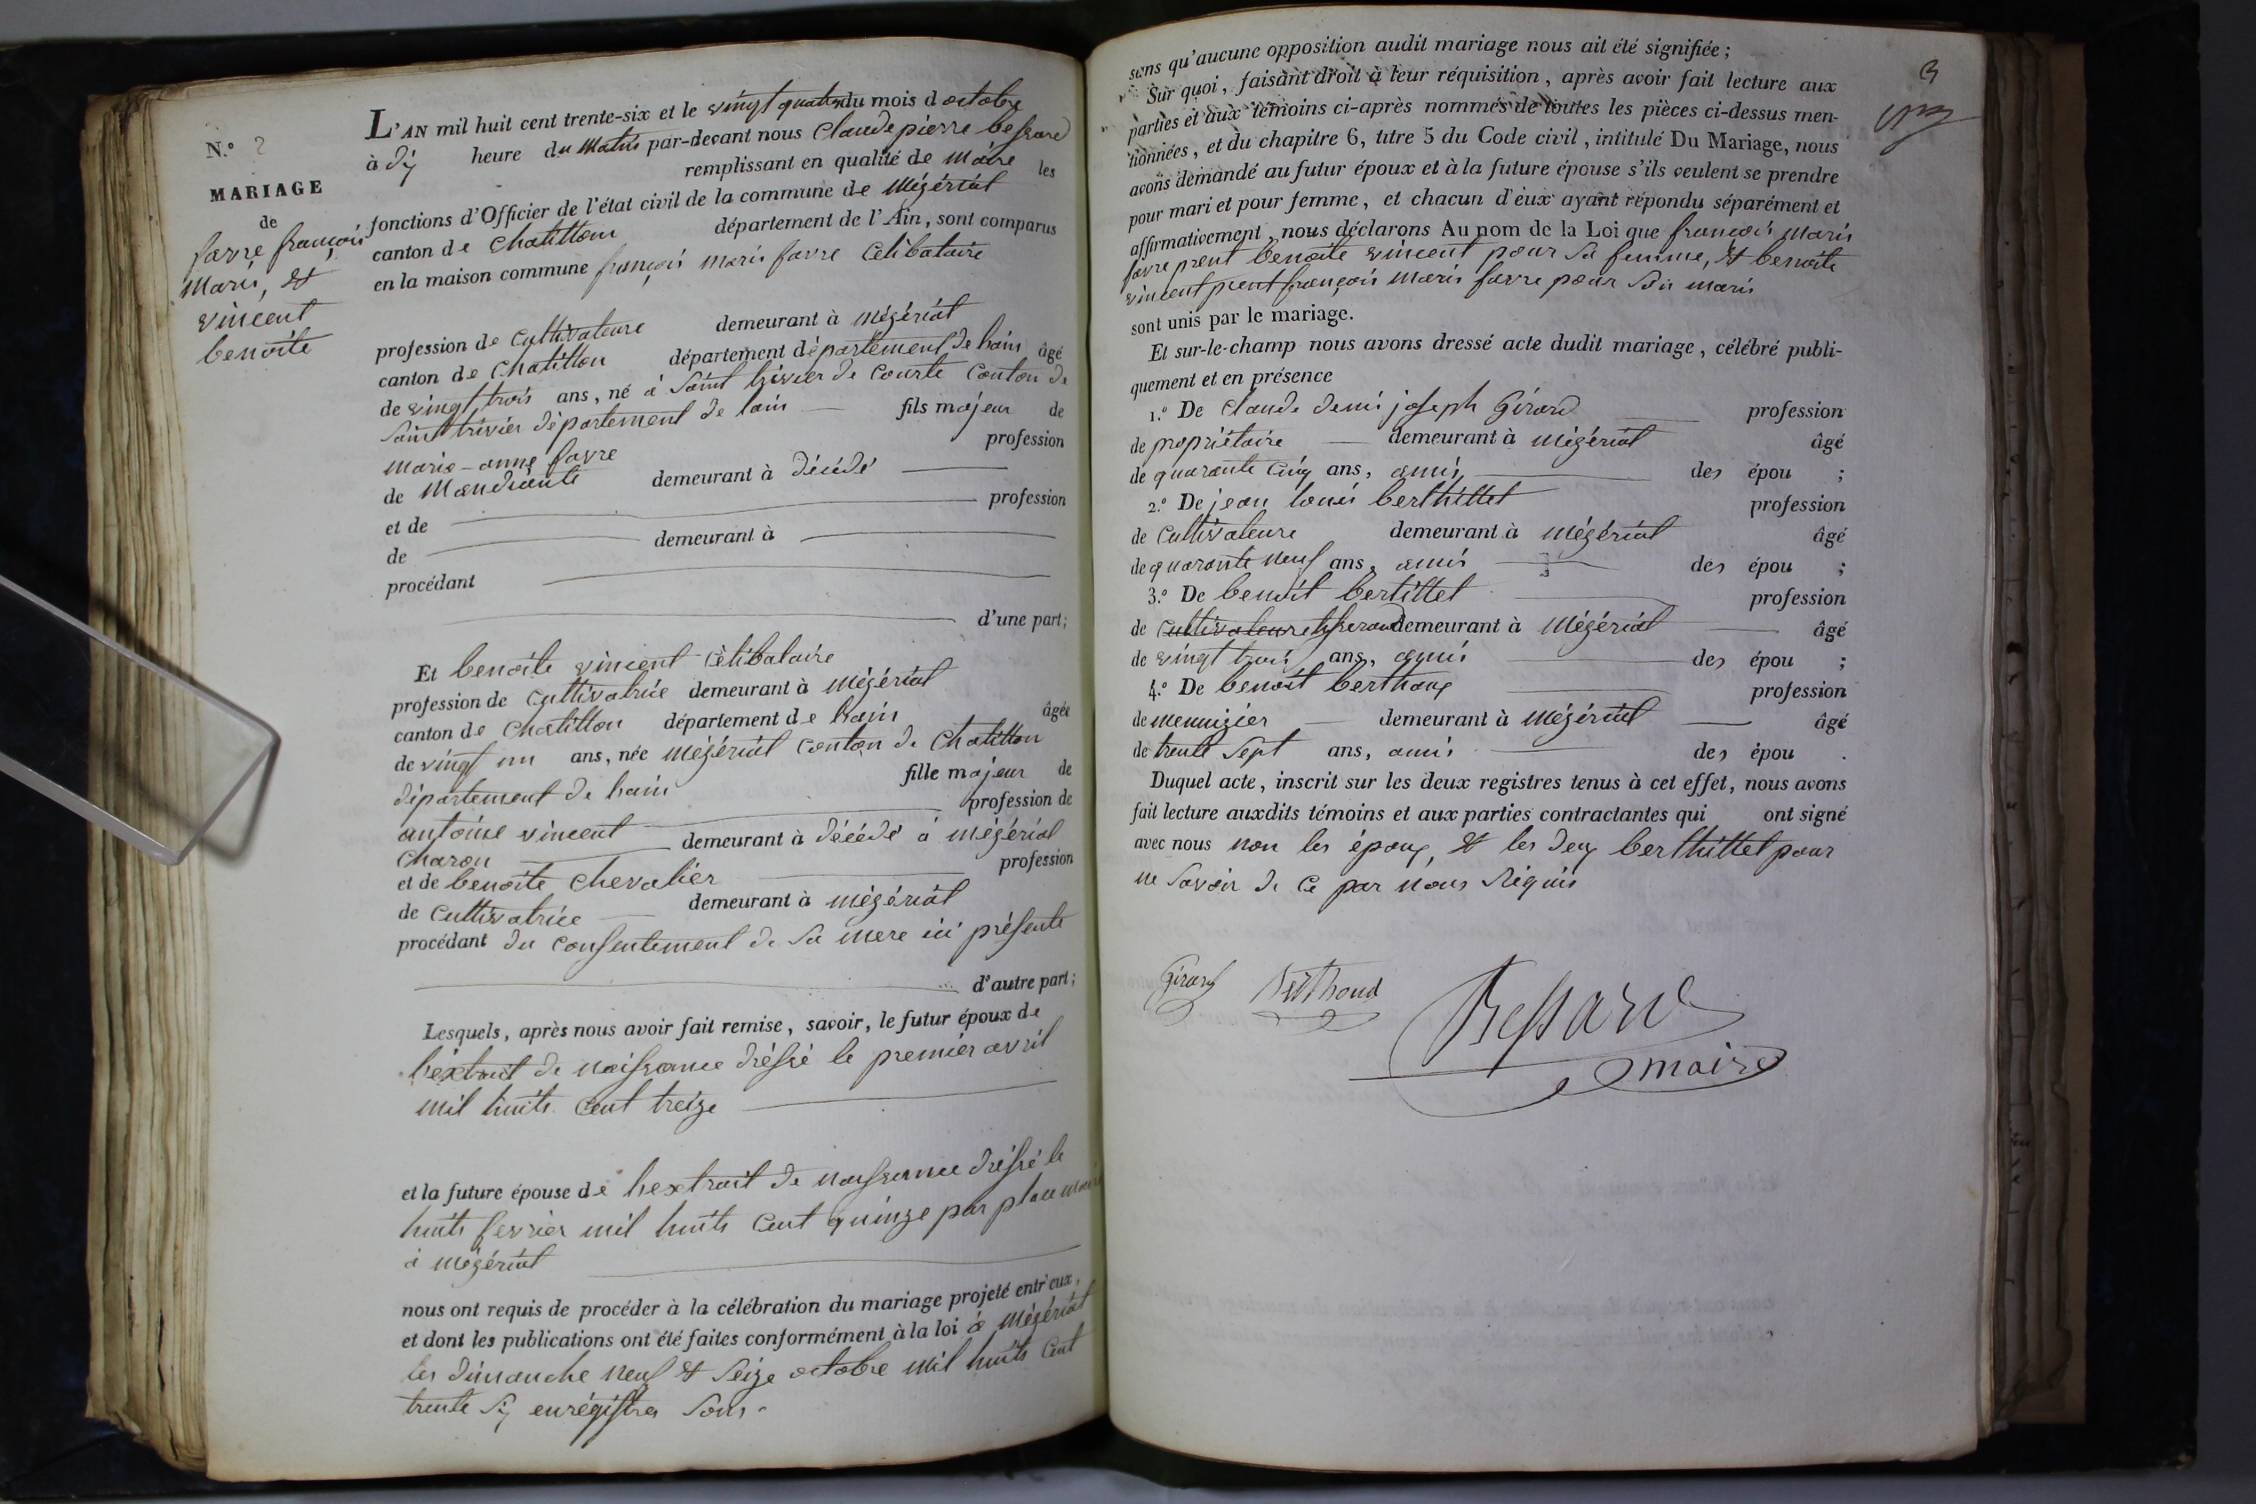 L'AN mil huit cent trente-six et le vingt quatre du mois d octobre
à dix heure du matin par-devant nous Claude pierre bessard
remplissant en qualité de maire les
fonctions d'Officier de l'état civil de la commune de mégériat
canton de Chatillon département de l'Ain, sont comparus
en la maison commune françois maris favre Célibataire
N.o 2
MARIAGE
de
favre françois
maris, &
vincent
benoite
profession de Cultivateure demeurant à mégériat
canton de Chatillon département département de hain âgé
de vingt trois ans, né à Saint trivier de Courte Canton de
Saint trivier département de lain fils majeur de
marie-anne favre profession
de Mandiante demeurant à décédé
et de profession
de demeurant à
procédant
d'une part;
Et benoite vincent Célibataire
profession de Cultivatrice demeurant à mégériat
canton de Chatillon département de hain âgée
de vingt un ans, née mégériat Canton de Chatillon
département de hain fille majeur de
antoine vincent profession de
Charon demeurant à décédé à mégériat
et de benoite Chevalier profession
de Cultivatrice demeurant à mégériat
procédant du consentement de sa mere ici présente
d'autre part;
Lesquels, après nous avoir fait remise, savoir, le futur époux de
l'extrait de naissance dréssé le premier avril
mil huits Cent treize
et la future épouse de hextrait de naissance dréssé le
huits fevrier mil huits Cent quinze par place maire
à mégériat
nous ont requis de procéder à la célébration du mariage projeté entr'eux,
et dont les publications ont été faites conformément à la loi à mégériat
les dimanche neuf & Seize octobre mil huits Cent
trente Six enrégistres Sous
3
sans qu'aucune opposition audit mariage nous ait été signifiée;
Sur quoi, faisant droit à leur réquisition, après avoir fait lecture aux
parties et aux témoins ci-après nommés de toutes les pièces ci-dessus men-
tionnées, et du chapitre 6, titre 5 du Code civil, intitulé Du Mariage, nous
avons demandé au futur époux et à la future épouse s'ils veulent se prendre
pour mari et pour femme, et chacun d'eux ayant répondu séparément et
affirmativement, nous déclarons Au nom de la Loi que françois maris
favre prent benoite vincent pour sa femme, & benoite
vincent prent françois maris favre pour Son maris
sont unis par le mariage.
Et sur-le-champ nous avons dressé acte dudit mariage, célébré publi-
quement et en présence
1.o De Claude denis joseph Girard profession
de propriétaire demeurant à mégériat âgé
de quarante cinq ans, amis des épou ;
2.o De jean louis berthillet profession
de Cultivateure demeurant à mégériat âgé
de quarante neuf ans, amis des épou ;
3.o De benoit bertillet profession
de Cultivateure tisserand demeurant à mégériat âgé
de vingt trois ans, amis des épou ;
4.o De benoit berthoux profession
de menuizier demeurant à mégériat âgé
de trente Sept ans, amis des épou .
Duquel acte, inscrit sur les deux registres tenus à cet effet, nous avons
fait lecture auxdits témoins et aux parties contractantes qui ont signé
avec nous non les époux, & les deux berthillet pour
ne Savoir de Ce par nous Réquis
Girard Berthoud Bessard
maire